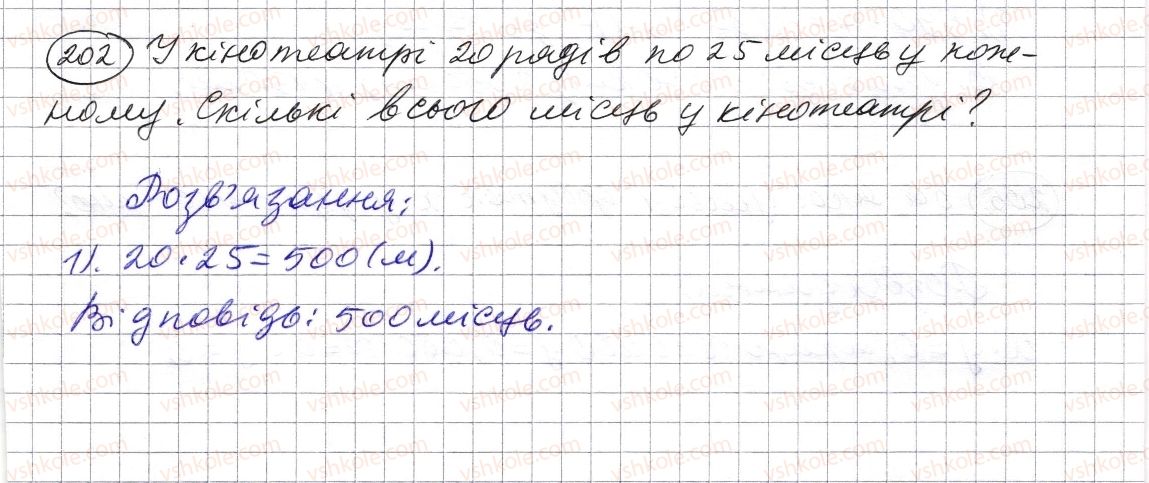 202 У кінотеатрі 20 рядів по 25 місць у кож-
ному. Скількі всього місць у кінотеатрі?
Розв'язання:
1). 20 · 25 = 500 (м).
Відповідь: 500 місць.